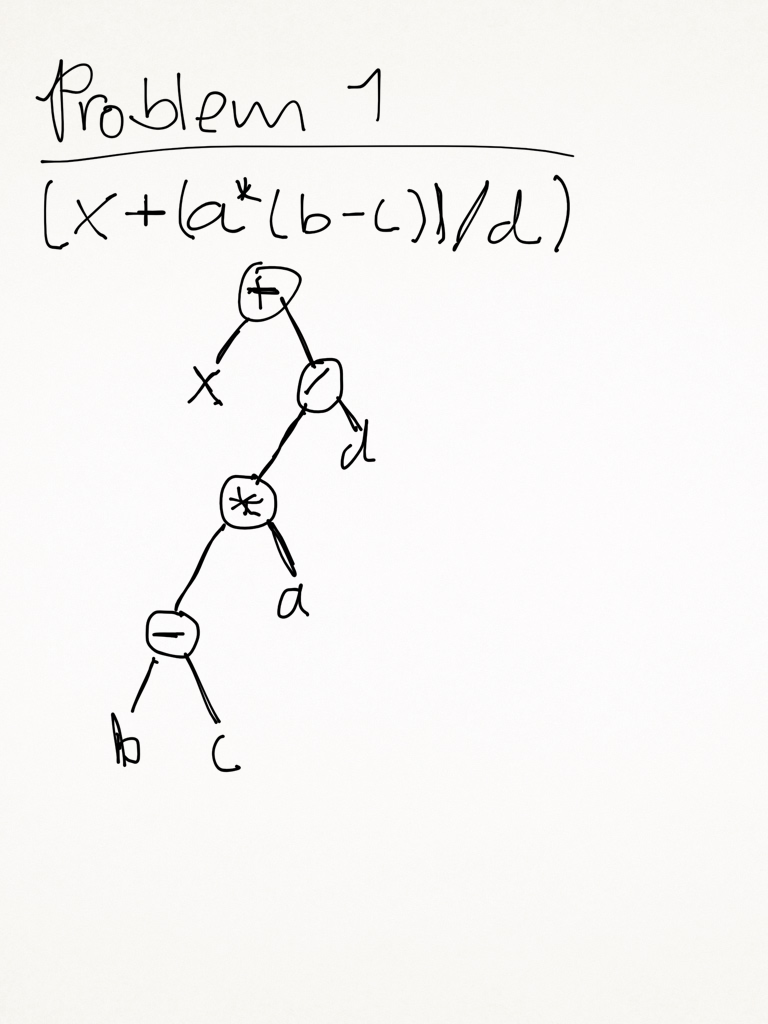 Problem 1
(x+(a*(b-c))/d)
+
x /
d
*
a
-
b c